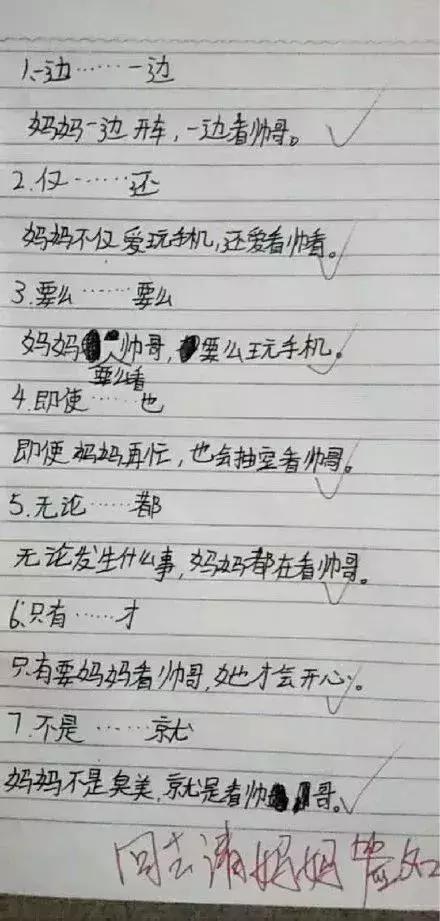 1.一边……一边
妈妈一边开车,一边看帅哥。
2.仅……还
妈妈不仅爱玩手机,还爱看帅看。
3.要么……要么
妈妈要么看帅哥,要么玩手机。
4.即使……也
即使妈妈再忙,也会抽空看帅哥。
5.无论……都
无论发生什么事,妈妈都在看帅哥。
6.只有……才
只有要妈妈看帅哥,她才会开心。
7.不是……就
妈妈不是臭美,就是看帅哥。
回去请妈妈